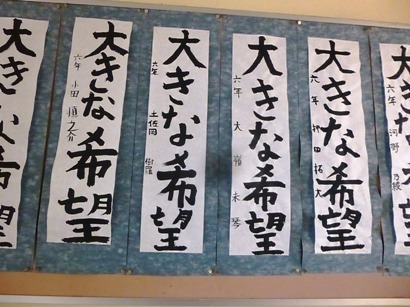 大きな希望
六年 河野 乃綾
大きな希望
六年 拓大
大きな希望
六年 大 未琴
大きな希望
六年 土佐岡 樹
大きな希望
六年 小田 恒之介
大きな希望